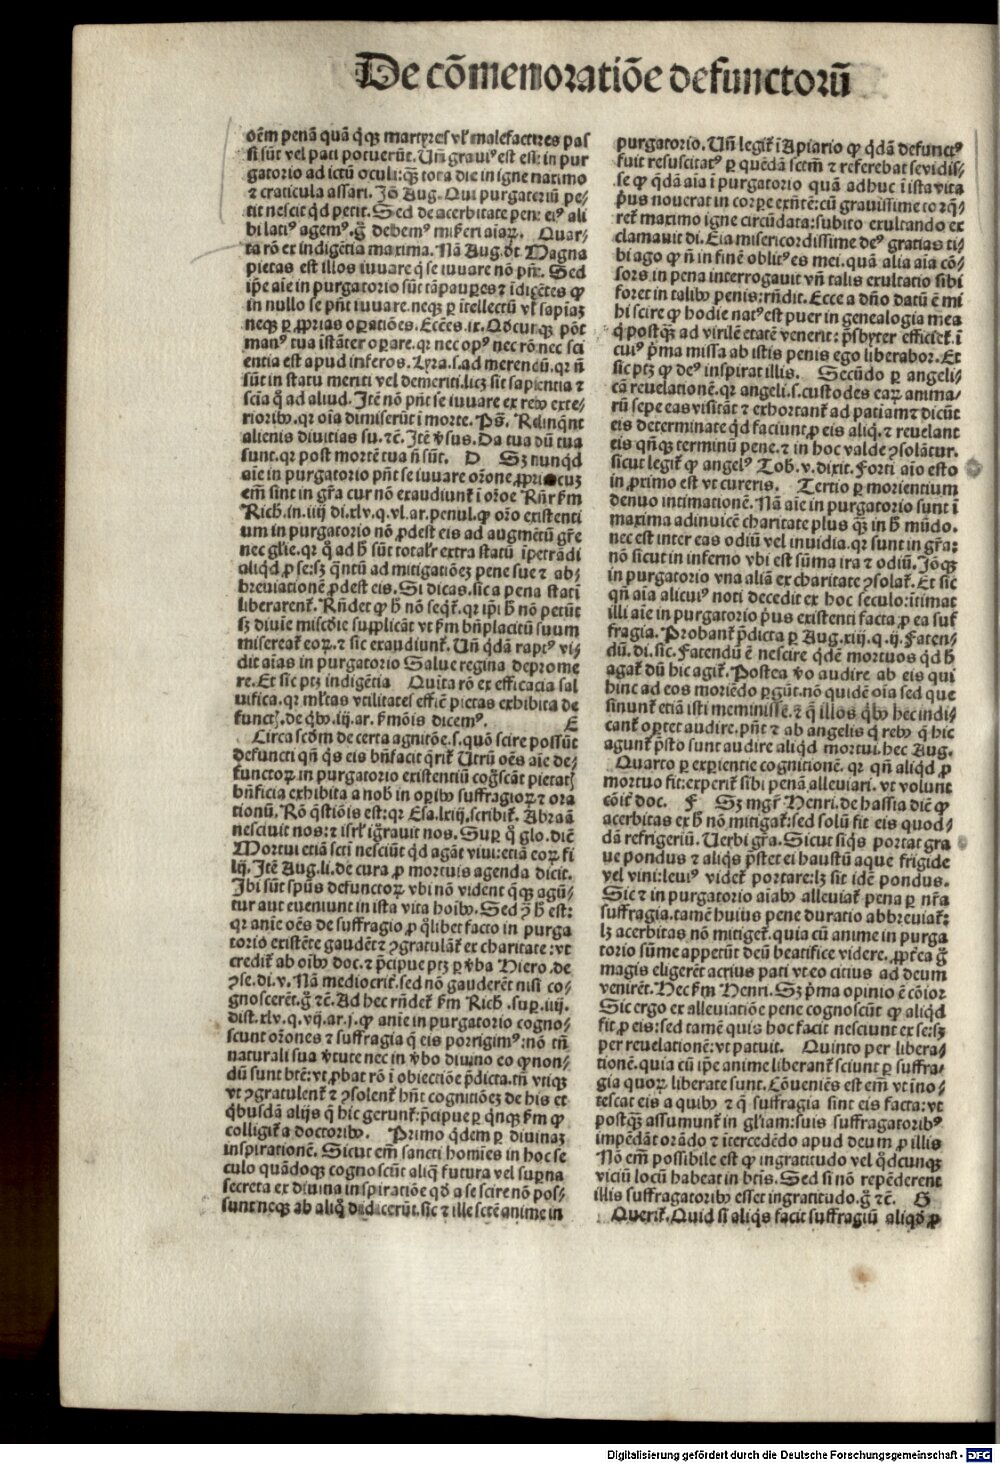 De cõmemoratiõe defunctorũ
oẽm penã quã q̃qꝫ martyres vl̃ malefactores pas
si sũt vel pati potuerũt. Uñ graviꝰ est esse in pur
gatorio ad ictũ oculi: qꝫ̃ tota die in igne narimo
⁊ craticula assari. Jõ Aug. Qui purgatoriũ pe⸗
tit nescit qd̃ petit. Sed de acerbitate pene eiꝰ ali
bi latiꝰ agemꝰ. g̃ debemꝰ misẽri aiaꝝ. Quar⸗
ta rõ ex indigẽtia maxima. Nã Aug. dt̃. Magna
pietas est illos iuvare q̃ se iuvare nõ pñt. Sed
ip̃e aĩe in purgatorio sũt tã pauꝑes ⁊ ĩdigẽtes ꝙ
in nullo se pñt iuvare. neqꝫ ꝑ ĩtellectũ vl̃ sapiaꝫ
neqꝫ ꝑ ꝓprias oꝑatiões. Ecc̃es. ix. Qd̃cũqꝫ põt
manꝰ tua istãter oꝑare. qꝛ nec opꝰ nec rõ nec sci
entia est apud inferos. Lyra. s. ad merendũ. qꝛ ñ
sũt in statu meriti vel demeriti. licꝫ sit sapientia ⁊
scĩa q̃ ad aliud. Jtẽ nõ pñt se iuvare ex rebꝰ exte⸗
rioribꝰ. qꝛ oĩa dimiserũt ĩ morte. Ps̃. Relinq̃nt
alienis divitias su. ⁊c̃. Jtẽ ṽsus. Da tua dũ tua
sunt. qꝛ post mortẽ tua ñ sũnt. D Sꝫ nunqd̃
aĩe in purgatorio pñt se iuvare or̃one ꝓpria cuꝫ
em̃ sint in gr̃a cur nõ exaudiunt̃ ĩ or̃oe Rñr̃ ẽm
Rich. in. iiij di. xlv. q. vl. ar. penul. ꝙ or̃o existenti
um in purgatorio nõ ꝓdest eis ad augmẽtũ gr̃e
nec gl̃ie. qꝛ q̊̃ ad h̃ sũt totalr̃ extra statũ ĩpetrãdi
aliqd̃ ꝓ se: sꝫ q̃ntũ ad mitigationeꝫ pene sue ⁊ ab⸗
breviationẽ ꝓdest eis. Si dicas. sic a pena statĩ
liberarent̃. Rñdet̃ ꝙ h̃ nõ seq̃t̃. qꝛ ip̃i h̃ nõ petũt
sꝫ diuĩe miscdĩe suꝓlicãt vt ẽm bñplacitũ suum
misereat̃ eoꝝ. ⁊ sic exaudiunt̃. Uñ qd̃ã raptꝰ vi⸗
dit aĩas in purgatorio Salue regina deprome
re. Et sic ptꝫ indigẽtia Quĩta rõ ex efficacia sal
uifica. qꝛ ml̃tas vtilitates effic̃ pietas exhibita de
funct̃. de qbꝰ. iij. ar. ẽmõis dicemꝰ. E
Circa scd̃m de certa agnitõe. s. quõ scire possũt
defuncti qñ q̃s eis bñfacit q̃rit̃ Utrũ oẽs aĩe de⸗
functoꝝ in purgatorio existentiũ cog̃scãt pietat̃
bñficia exhibita a nob̃ in oꝑibꝰ suffragioꝝ ⁊ ora
tionũ. Rõ qstiõis est: qꝛ Esa. lxiij. scribit̃. Abraã
nesciuit nos: ⁊ isrl̃ ig̃rauit nos. Suꝑ q̊ glo. dic̃
Mortui etiã scti nesciũt qd̃ agãt viui: etiã eoꝝ fi
lij. Jtẽ Aug. li. de cura ꝓ mortuis agenda dicit.
Jbi sũt spũs defunctoꝝ vbi nõ vident q̃qꝫ agũ⸗
tur aut eveniunt in ista vita hoĩbꝰ. Sed ꝯ̃ h̃ est:
qꝛ anĩe oẽs de suffragio ꝓ q̃libet facto in purga
torio existẽte gaudẽt ⁊ ꝯgratulãt̃ ex charitate: vt
credit̃ ab oĩbꝰ doc. ⁊ p̃cipue ptꝫ ꝑ ṽba Hiero. de
ꝯse. di. v. Nã mediocrit̃. sed nõ gauderẽt nisi co⸗
gnoscerẽt. g̃ ⁊c̃. Ad hec rñdet̃ ẽm Rich. suꝑ. iiij.
dist. xlv. q. vij. ar. j. ꝙ anĩe in purgatorio cogno⸗
scunt or̃ones ⁊ suffragia q̃ eis porrigimꝰ: nõ tñ
naturali sua ṽtute nec in ṽbo diuino eo ꝙ non⸗
dũ sunt btẽ: vt ꝓbat rõ ĩ obiectiõe p̃dicta. tñ vtiqꝫ
vt ꝯgratulent̃ ⁊ ꝯsolent̃ hñt cognitiõeꝫ de his et
q̃busdã alijs q̃ hic gerunt̃: p̃cipue ꝑ q̃nqꝫ ẽm ꝙ
colligit̃ a doctoribꝰ. Primo q̃dem ꝑ divinaꝫ
inspirationẽ. Sicut em̃ sancti homĩes in hoc se
culo quãdoqꝫ cognoscũt aliq̃ futura vel suꝑna
secreta ex diuina inspiratiõe qd̃ a se scire nõ pos⸗
sunt neqꝫ ab aliq̊ didicerũt. sic ⁊ ille sctẽ anime in
purgatorio. Uñ legit̃ ĩ Apiario ꝙ qd̃ã defunctꝰ
fuit resuscitatꝰ ꝑ quẽdã sctm̃ ⁊ referebat se vidis⸗
se ꝙ qd̃ã aĩa ĩ purgatorio quã adhuc ĩ ista vita
p̃us noverat in corꝑe exñtẽ: cũ gravissime torq̃⸗
ret̃ maximo igne circũdata: subito exultando ex
clamauit di. Eia misericordissime deꝰ gratias ti⸗
bi ago ꝙ ñ in finẽ oblitꝰ es mei. quã alia aĩa cõ⸗
sors in pena interrogauit vñ talis exultatio sibi
foret in talibꝰ penis: rñdit. Ecce a dño datũ ẽ mi
hi scire ꝙ hodie natꝰ est puer in genealogia mea
q̃ postqꝫ̃ ad virilẽ etatẽ venerit: p̃sbyter efficiet̃. ĩ
cuiꝰ p̃ma missa ab istis penis ego liberabor. Et
sic ptꝫ ꝙ deꝰ inspirat illis. Secũdo ꝑ angeli⸗
cã reuelationẽ. qꝛ angeli. s. custodes eaꝝ anima⸗
rũ sepe eas visitãt ⁊ exhortant̃ ad patiam ⁊ dicũt
eis determinate qd̃ faciunt ꝓ eis aliq̃. ⁊ revelant
eis qñqꝫ terminũ pene. ⁊ in hoc valde ꝯsolãtur.
sicut legit̃ ꝙ angelꝰ Tob. v. dixit. Forti aĩo esto
in ꝓximo est vt cureris. Tertio ꝑ morientium
denuo intimationẽ. Nã aĩe in purgatorio sunt ĩ
maxima adinuicẽ charitate plus qꝫ̃ in h̃ mũdo.
nec est inter eas odiũ vel inuidia. qꝛ sunt in gr̃a:
nõ sicut in inferno vbi est sũma ira ⁊ odiũ. Jõqꝫ
in purgatorio vna aliã ex charitate ꝯsolat̃. Et sic
qñ aĩa alicuiꝰ noti decedit ex hoc seculo: ĩtimat
illi aĩe in purgatorio p̃us existenti facta ꝓ ea suf
fragia. Probant̃ p̃dicta ꝑ Aug. xiij. q. ij. Faten⸗
dũ. di. sic. Fatendũ ẽ nescire qd̃ẽ mortuos qd̃ h̃
agat̃ dũ hic agit̃. Postea ṽo audire ab eis qui
hinc ad eos moriẽdo ꝑgũt. nõ quidẽ oĩa sed que
sinunt̃ etiã isti meminisse. ⁊ q̃ illos q̃bꝰ hec indi⸗
cant̃ oꝑtet audire. pñt ⁊ ab angelis q̃ rebꝰ q̃ hic
agunt̃ p̃sto sunt audire aliqd̃ mortui. hec Aug.
Quarto ꝑ exꝑientie cognitionẽ. qꝛ qñ aliqd̃ ꝓ
mortuo fit: experit̃ sibi penã alleuiari. vt volunt
cõit̃ doc. F Sꝫ mgr̃ Henri. de hassia dic̃ ꝙ
acerbitas ex h̃ nõ mitigat̃: sed solũ fit eis quod⸗
dã refrigeriũ. Uerbi gr̃a. Sicut siq̃s portat gra
ue pondus ⁊ aliq̃s p̃stet ei haustũ aque frigide
vel vini: leviꝰ videt̃ portare: lꝫ sit idẽ pondus.
Sic ⁊ in purgatorio aĩabꝰ alleuiat̃ pena ꝑ nr̃a
suffragia. tamẽ huius pene duratio abbreviat̃:
lꝫ acerbitas nõ mitiget̃. quia cũ anime in purga
torio sũme appetũt deũ beatifice videre. ꝓpt̃ea g̃
magis eligerẽt acrius pati vt eo citius ad deum
venirẽt. Hec ẽm Henri. Sꝫ p̃ma opinio ẽ cõior
Sic ergo ex alleuiatiõe pene cognoscũt ꝙ aliqd̃
fit ꝓ eis: sed tamẽ quis hoc facit nesciunt ex se: sꝫ
per revelationẽ: vt patuit. Quinto per libera⸗
tionẽ. quia cũ ip̃e anime liberant̃ sciunt ꝑ suffra⸗
gia quoꝝ liberate sunt. Cõveniẽs est em̃ vt ĩno⸗
tescat eis a quibꝰ ⁊ q̃ suffragia sint eis facta: vt
postqꝫ̃ assumunt̃ in gl̃iam: suis suffragatoribꝰ
impẽdãt orãdo ⁊ ĩtercedẽdo apud deum ꝓ illis
Nõ em̃ possibile est ꝙ ingratitudo vel q̃dcunqꝫ
viciũ locũ habeat in btĩs. Sed si nõ repẽderent
illis suffragatoribꝰ esset ingratitudo. g̃ ⁊c̃. G
Querit̃. Quid si aliq̃s facit suffragiũ aliqd̃ ꝓ
Digitalisierung gefördert durch die Deutsche Forschungsgemeinschaft - DFG